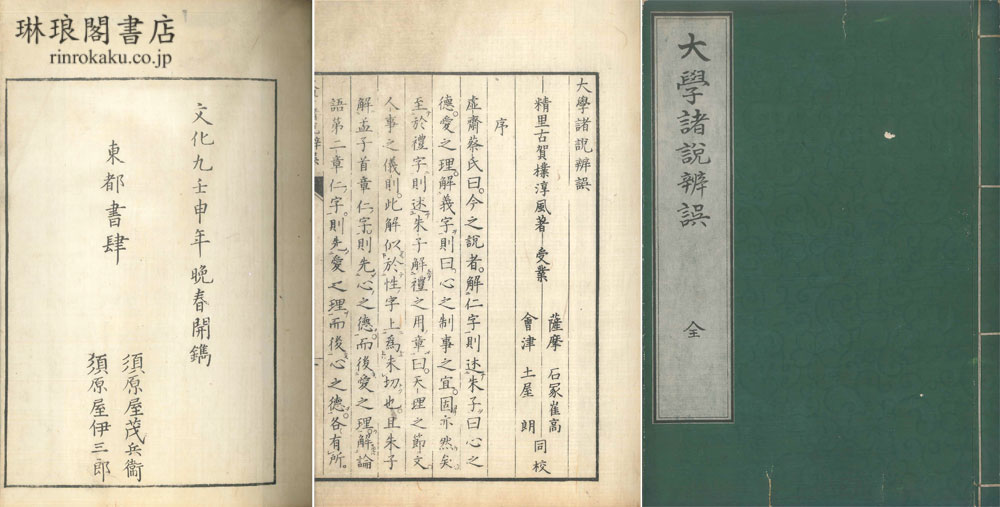 琳琅閣書店
rinrokaku.co.jp
文化九壬申年晩春開鐫
東都書肆
須原屋茂兵衞
須原屋伊三郎
大學諸說辨誤
精里古賀樸淳風著 受業
薩摩 石冢崔高
會津 土屋 朗
同校
序
虛齋蔡氏曰。今之說者。解仁字則述朱子曰心之
德。愛之理。解義字則曰。心之制事之宜。固亦然矣
至於禮字則述朱子解禮之用章曰。天理之節文
人事之儀則。此解似於性字上爲未切也。且朱子
解孟子首章仁字則先心之德。而後愛之理。解論
語第二章仁字。則先愛之理而後心之德。各有所。
大學諸說辨誤
全